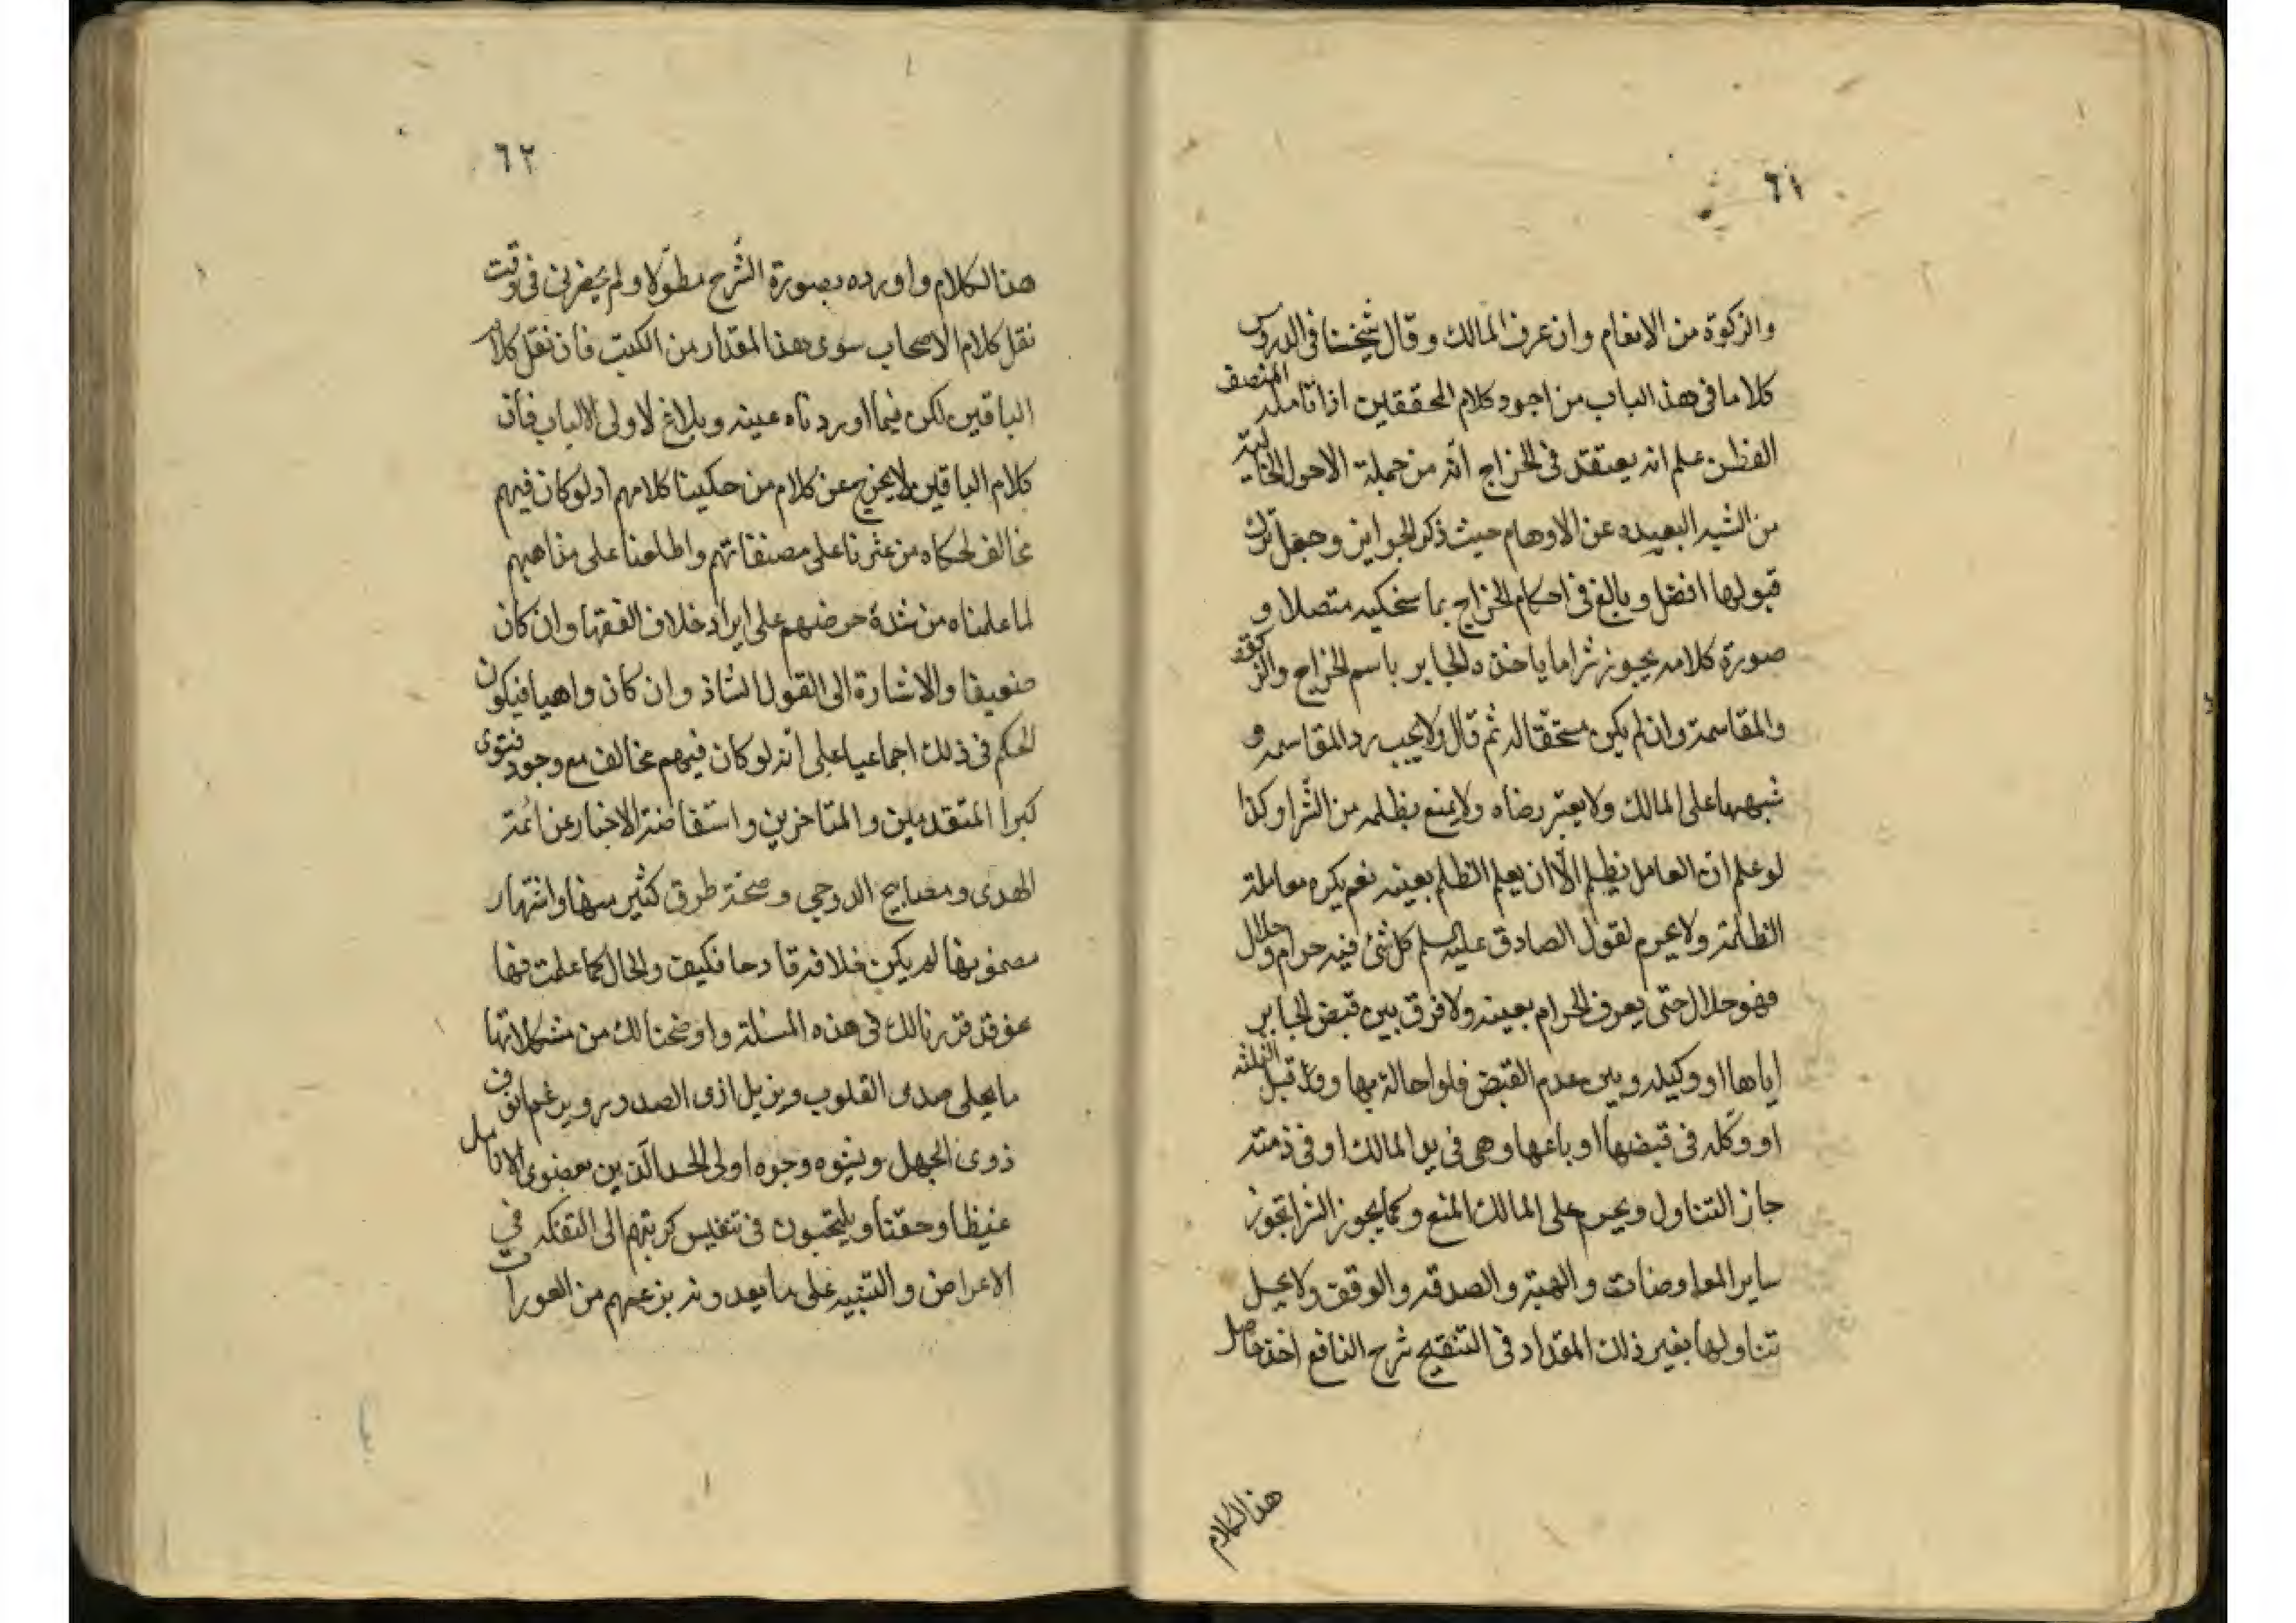 ٦١
والزكوة من الانعام وان عرف المالك وقال شيخنا فى الدروس
كلاما فى هذا الباب من اجود كلام المحققين اذا تامله المنصف
الفطن علم انه يعتقد فى الخراج انّه من جملة الاحوال الخالية
من الشبه البعيده عن الاوهام حيث ذكر الجوايز وجعل ترك
قبولها افضل وبالغ فى احكام الخراج بما سنحكيه متصلا و
صورة كلامه يجوز شرا ما ياخذه الجابر باسم الخراج والزكوة
والمقاسمة وان لم يكن مستحقّا له ثم قال ولا يجب رد المقاسمه و
شبهها على المالك ولا يعتبر رضاه ولا يمنع بظلمه من الشرا وكذا
لو علم ان العامل يظلم الّا ان يعلم الظلم بعينه نعم يكره معاملة
الظلمة ولا يحرم لقول الصادق عليه السلم كل شئ فيه حرام وحلال
فهو حلال حتى يعرف الحرام بعينه ولا فرق بين قبض الجابر
اياها او وكيله وبين عدم القبض فلو احاله بها وقبل الثلثه
او وكّله فى قبضها او باعها وهى فى يد المالك او فى ذمته
جاز التناول ويحرم على المالك المنع وكما يجوز الشرا تجوز
ساير المعاوضات والهبة والصدقه والوقف ولا يحل
تناولها بغير ذلك المقداد فى التنقيح شرح النافع اخذ حاصل
هذا الكلام
٦٢
هذا الكلام واورده بصورة الشرح مطوّلا ولم يحضرنى فى وقت
نقل كلام الاصحاب سوى هذا المقدار من الكتب فان نقل كلام
الباقين لكن فيما اوردناه غنيه وبلاغ لاولى الالباب فان
كلام الباقين لا يخرج عن كلام من حكينا كلامهم اذ لو كان فيهم
مخالف لحكاه من عثرنا على مصنفاتهم واطلعنا على مذاهبهم
لما علمناه من شدة حرصهم على ايراد خلاف الفقها وان كان
ضعيفا والاشارة الى القول الشاذ وان كان واهيا فيكون
الحكم فى ذلك اجماعيا على انّه لو كان فيهم مخالف مع وجود فتوى
كبرا المتقدمين والمتاخرين واستفاضة الاخبار عن ائمة
الهدى ومصابيح الدوجى وصحّة طرق كثير منها واشتهار
مضمونها لم يكن خلافه قادحا فكيف والحال كما علمت فها
نحن قد قررنا لك فى هذه المسئلة واوضحنا لك من مشكلاتها
ما يجلى صدى القلوب ويزيل اذى الصدور ويرغم انوف
ذوى الجهل ويشوه وجوه اولى الحسد الّذين يعضون الانامل
غيظا وحنقا ويلتجئون فى تنفيس كربتهم الى التفكه في
الاعراض والتنبيه على ما يعدونه بزعمهم من العورات